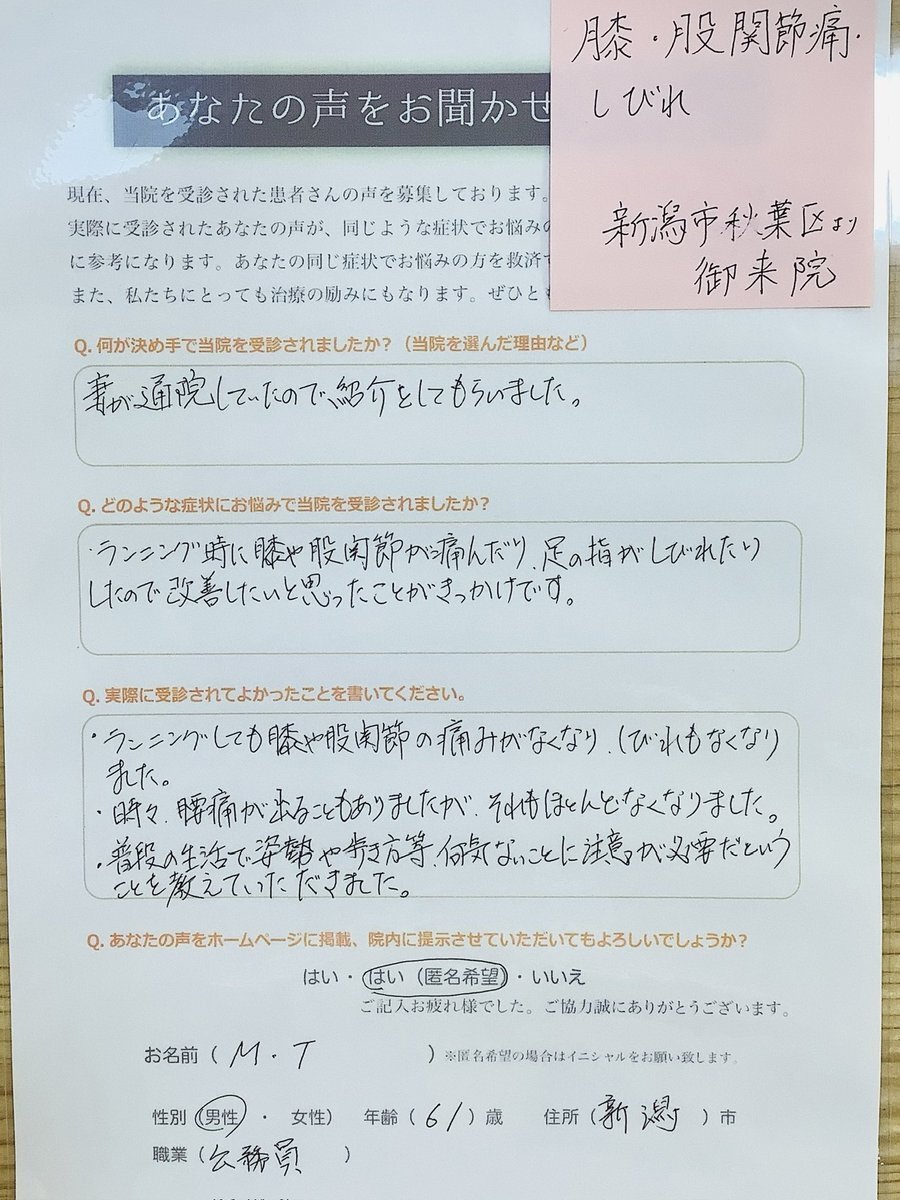 膝・股関節痛・
しびれ
新潟市秋葉区より
御来院
あなたの声をお聞かせ
現在、当院を受診された患者さんの声を募集しております。
実際に受診されたあなたの声が、同じような症状でお悩みの
に参考になります。あなたの同じ症状でお悩みの方を救済で
また、私たちにとっても治療の励みにもなります。ぜひとも
Q. 何が決め手で当院を受診されましたか？（当院を選んだ理由など）
妻が通院していたので、紹介をしてもらいました。
Q. どのような症状にお悩みで当院を受診されましたか？
・ランニング時に膝や股関節が痛んだり、足の指がしびれたり
したので改善したいと思ったことがきっかけです。
Q. 実際に受診されてよかったことを書いてください。
・ランニングしても膝や股関節の痛みがなくなり、しびれもなくなり
ました。
・時々、腰痛が出ることもありましたが、それもほとんどなくなりました。
・普段の生活で姿勢や歩き方等、何気ないことに注意が必要だという
ことを教えていただきました。
Q. あなたの声をホームページに掲載、院内に提示させていただいてもよろしいでしょうか？
はい・はい（匿名希望）・いいえ
ご記入お疲れ様でした。ご協力誠にありがとうございます。
お名前（ M・T ）※匿名希望の場合はイニシャルをお願い致します。
性別（男性 ・ 女性） 年齢（ 61 ）歳 住所（ 新潟 ）市
職業（ 公務員 ）